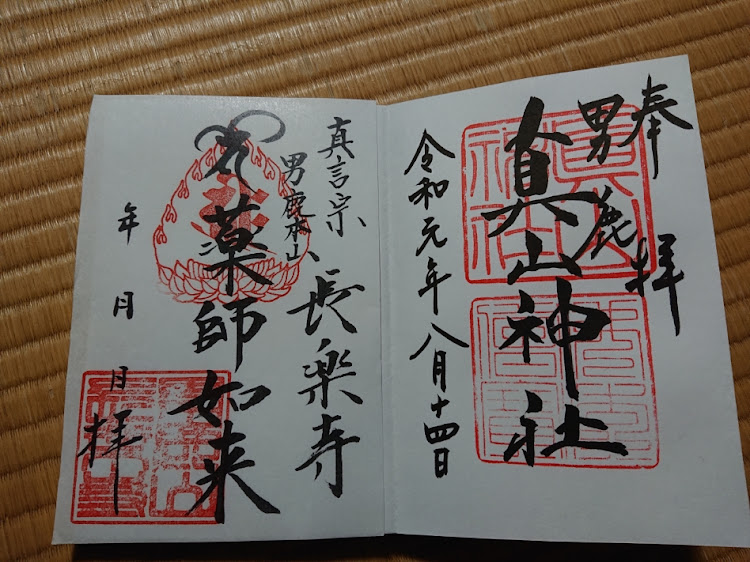 奉拝
男鹿
真山神社
令和元年八月十四日
真山神社
真言宗
男鹿本山
長楽寺
薬師如来
年月日拝